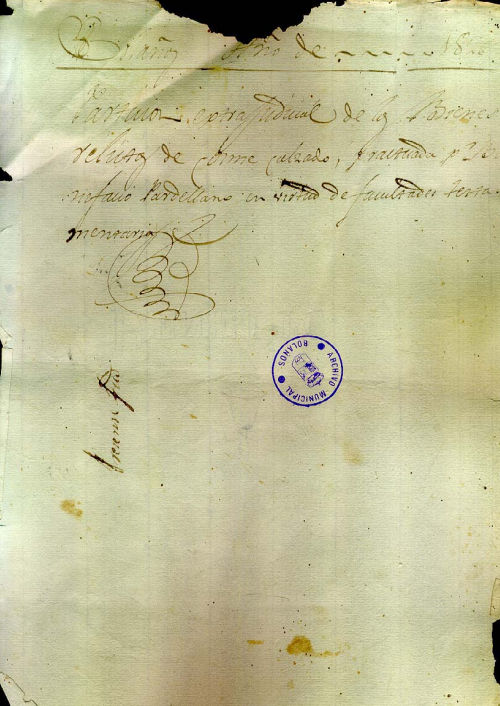 Bolaños Año de 18
Partición extrajudicial de los Bienes
relictos de Cosme Calzado, practicada p.r
nifacio Pardellano en virtud de facultades testa
mentarias
ARCHIVO MUNICIPAL
BOLAÑOS